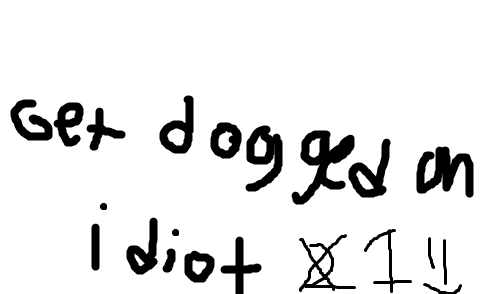 Get dogged on
idiot 1!!